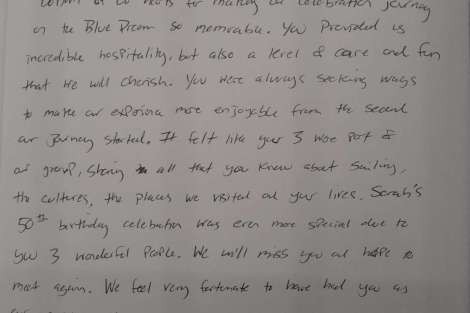 of our hearts for making our celebration journey
on the Blue Dream so memorable. You provided us
incredible hospitality, but also a level of care and fun
that we will cherish. You were always seeking ways
to make our experience more enjoyable from the second
our journey started. It felt like your 3 were part of
our group, sharing all that you knew about sailing,
the cultures, the places we visited and your lives. Sarah's
50th birthday celebration was even more special due to
you 3 wonderful people. We will miss you and hope to
meet again. We feel very fortunate to have had you as